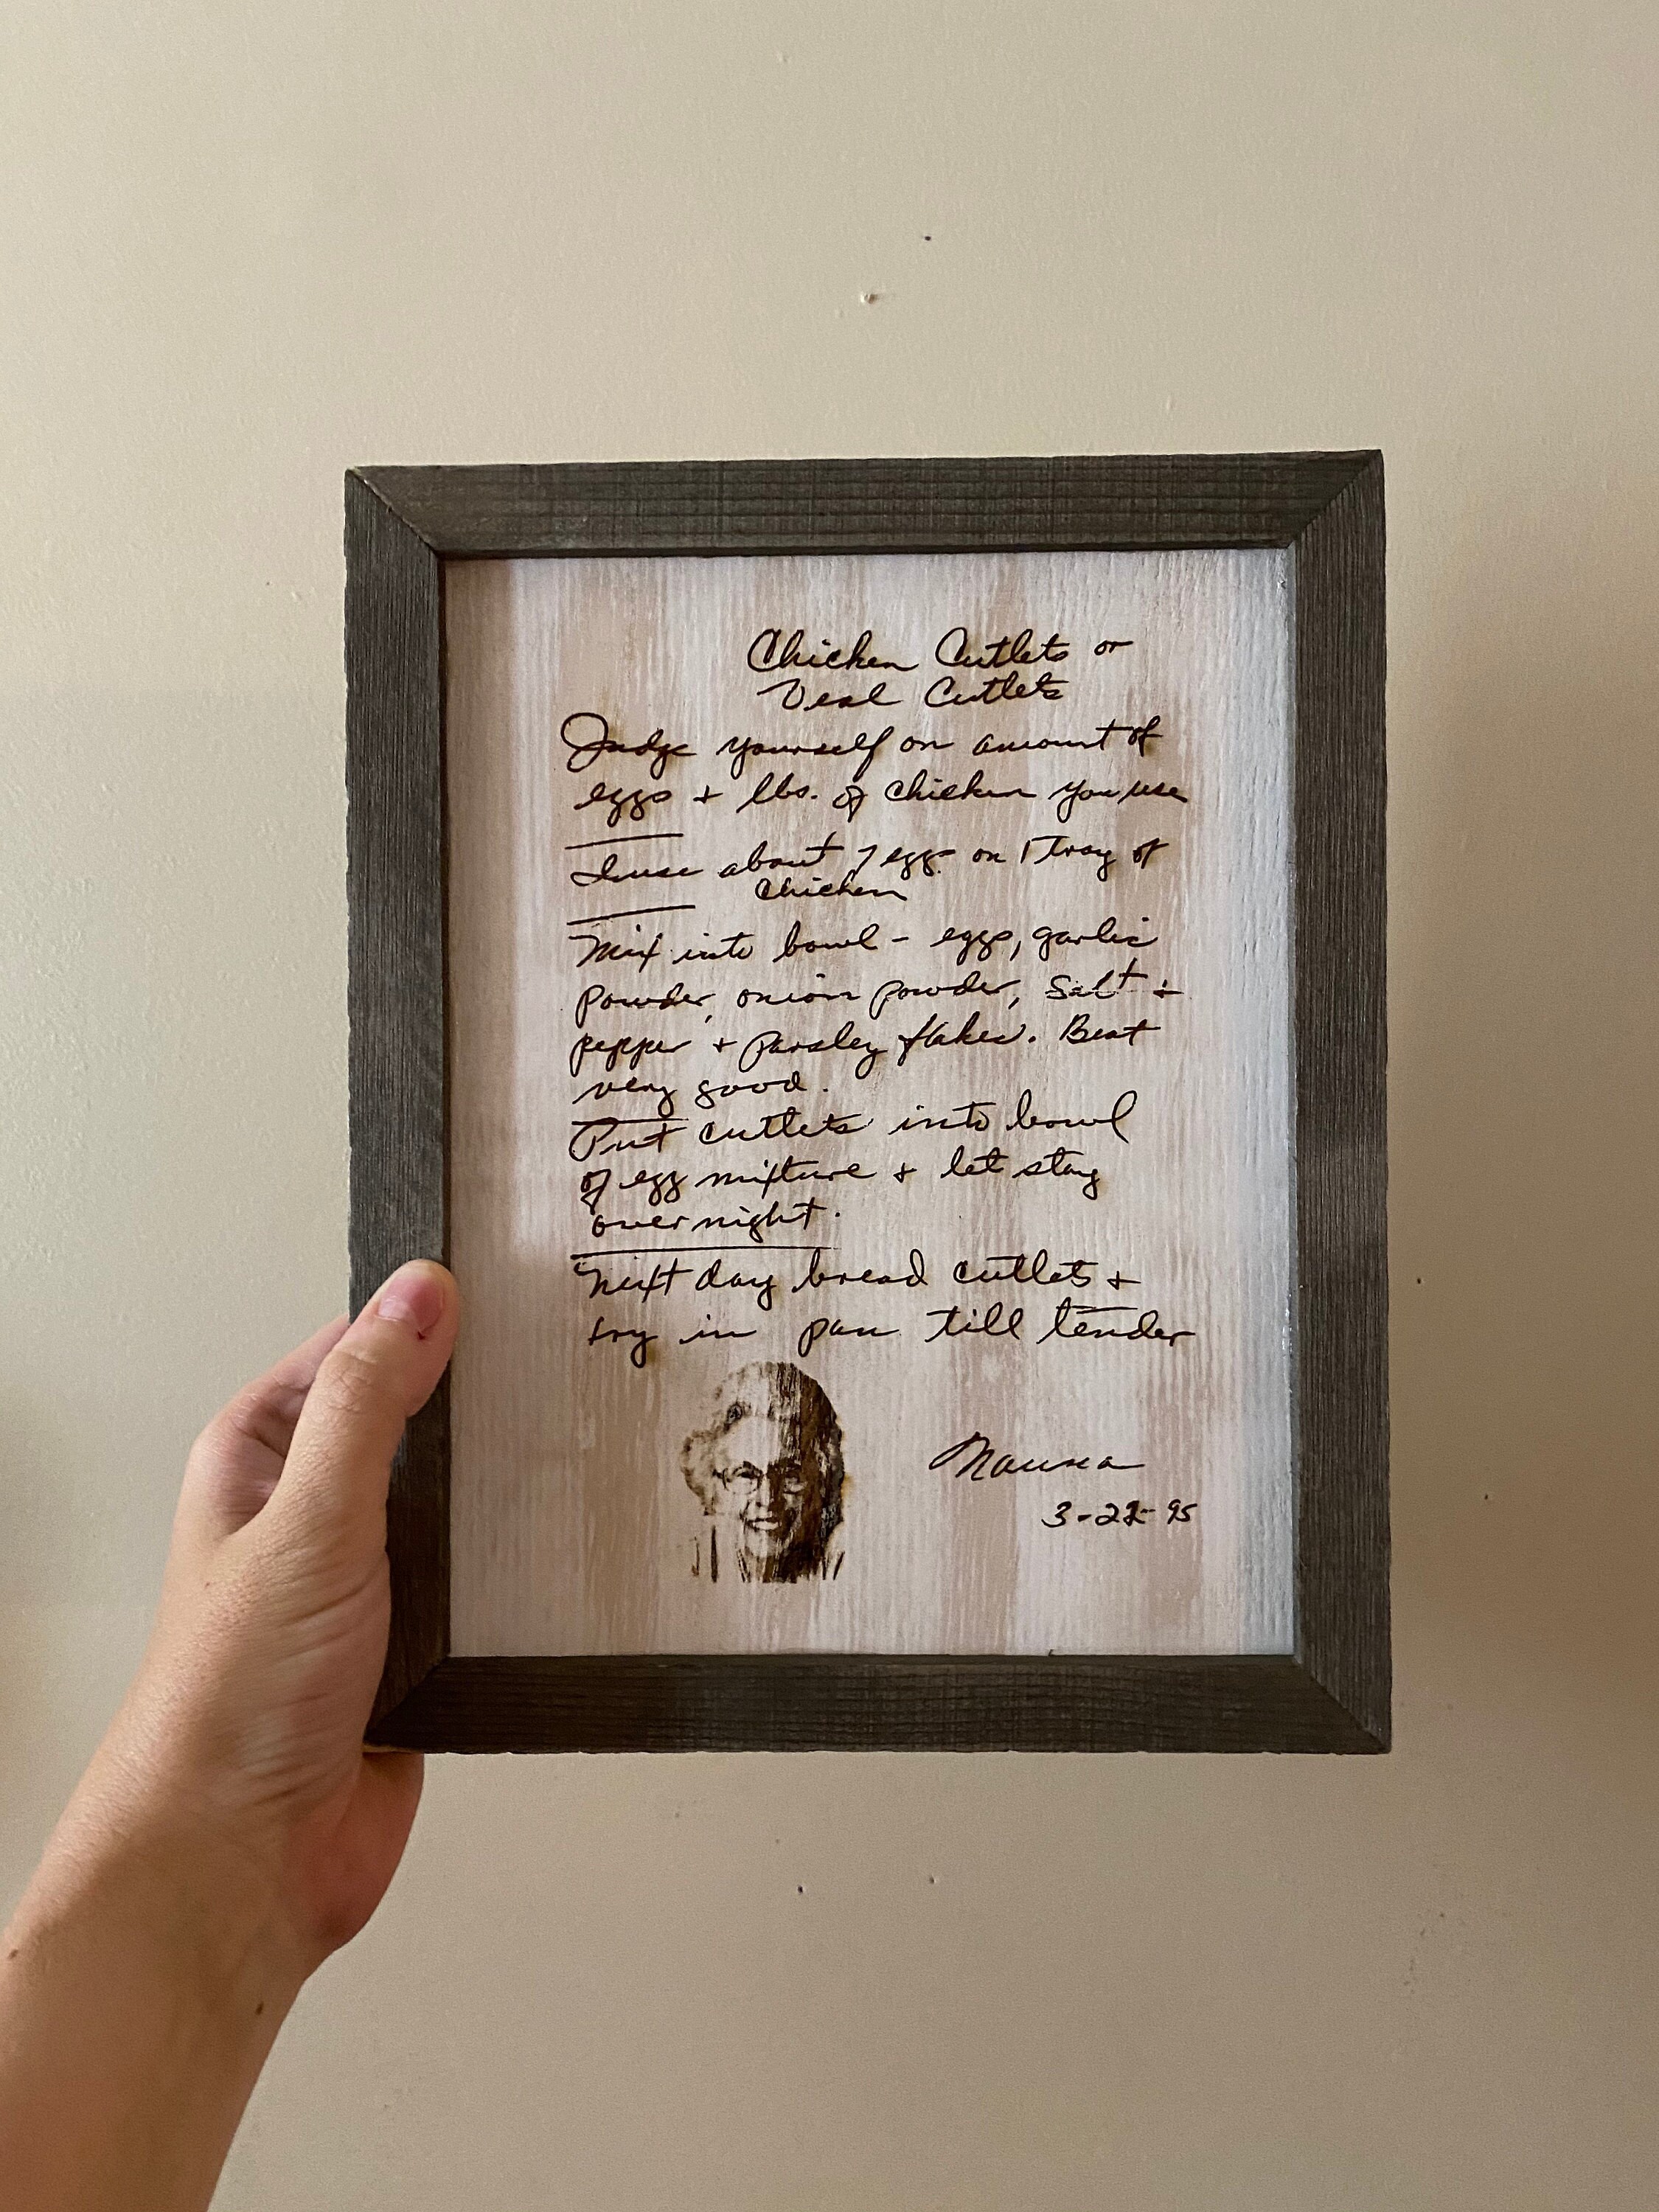 Chicken Cutlets or
Veal Cutlets
Judge yourself on amount of
eggs + lbs. of chicken you use
I use about 7 eggs on 1 tray of
chicken
Mix into bowl - eggs, garlic
powder, onion powder, salt +
pepper + parsley flakes. Beat
very good.
Put cutlets into bowl
of egg mixture + let stay
overnight.
Next day bread cutlets +
fry in pan till tender
Nanna
3-22-95